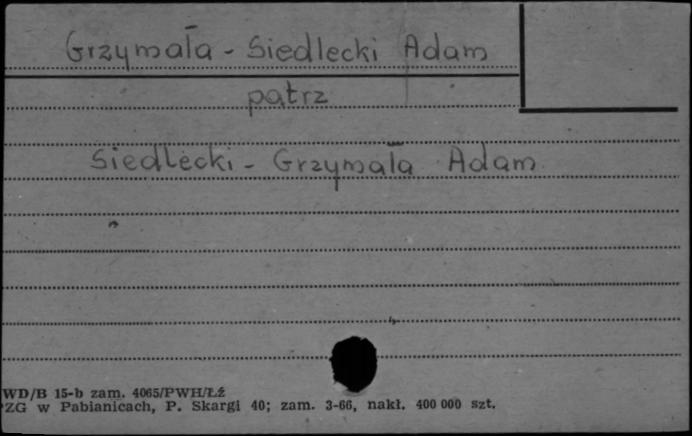 Grzymała - Siedlecki Adam
patrz
Siedlecki - Grzymała Adam
WD/B 15-b zam. 4065/PWH/Łź
PZG w Pabianicach, P. Skargi 40; zam. 3-66, nakł. 400 000 szt.